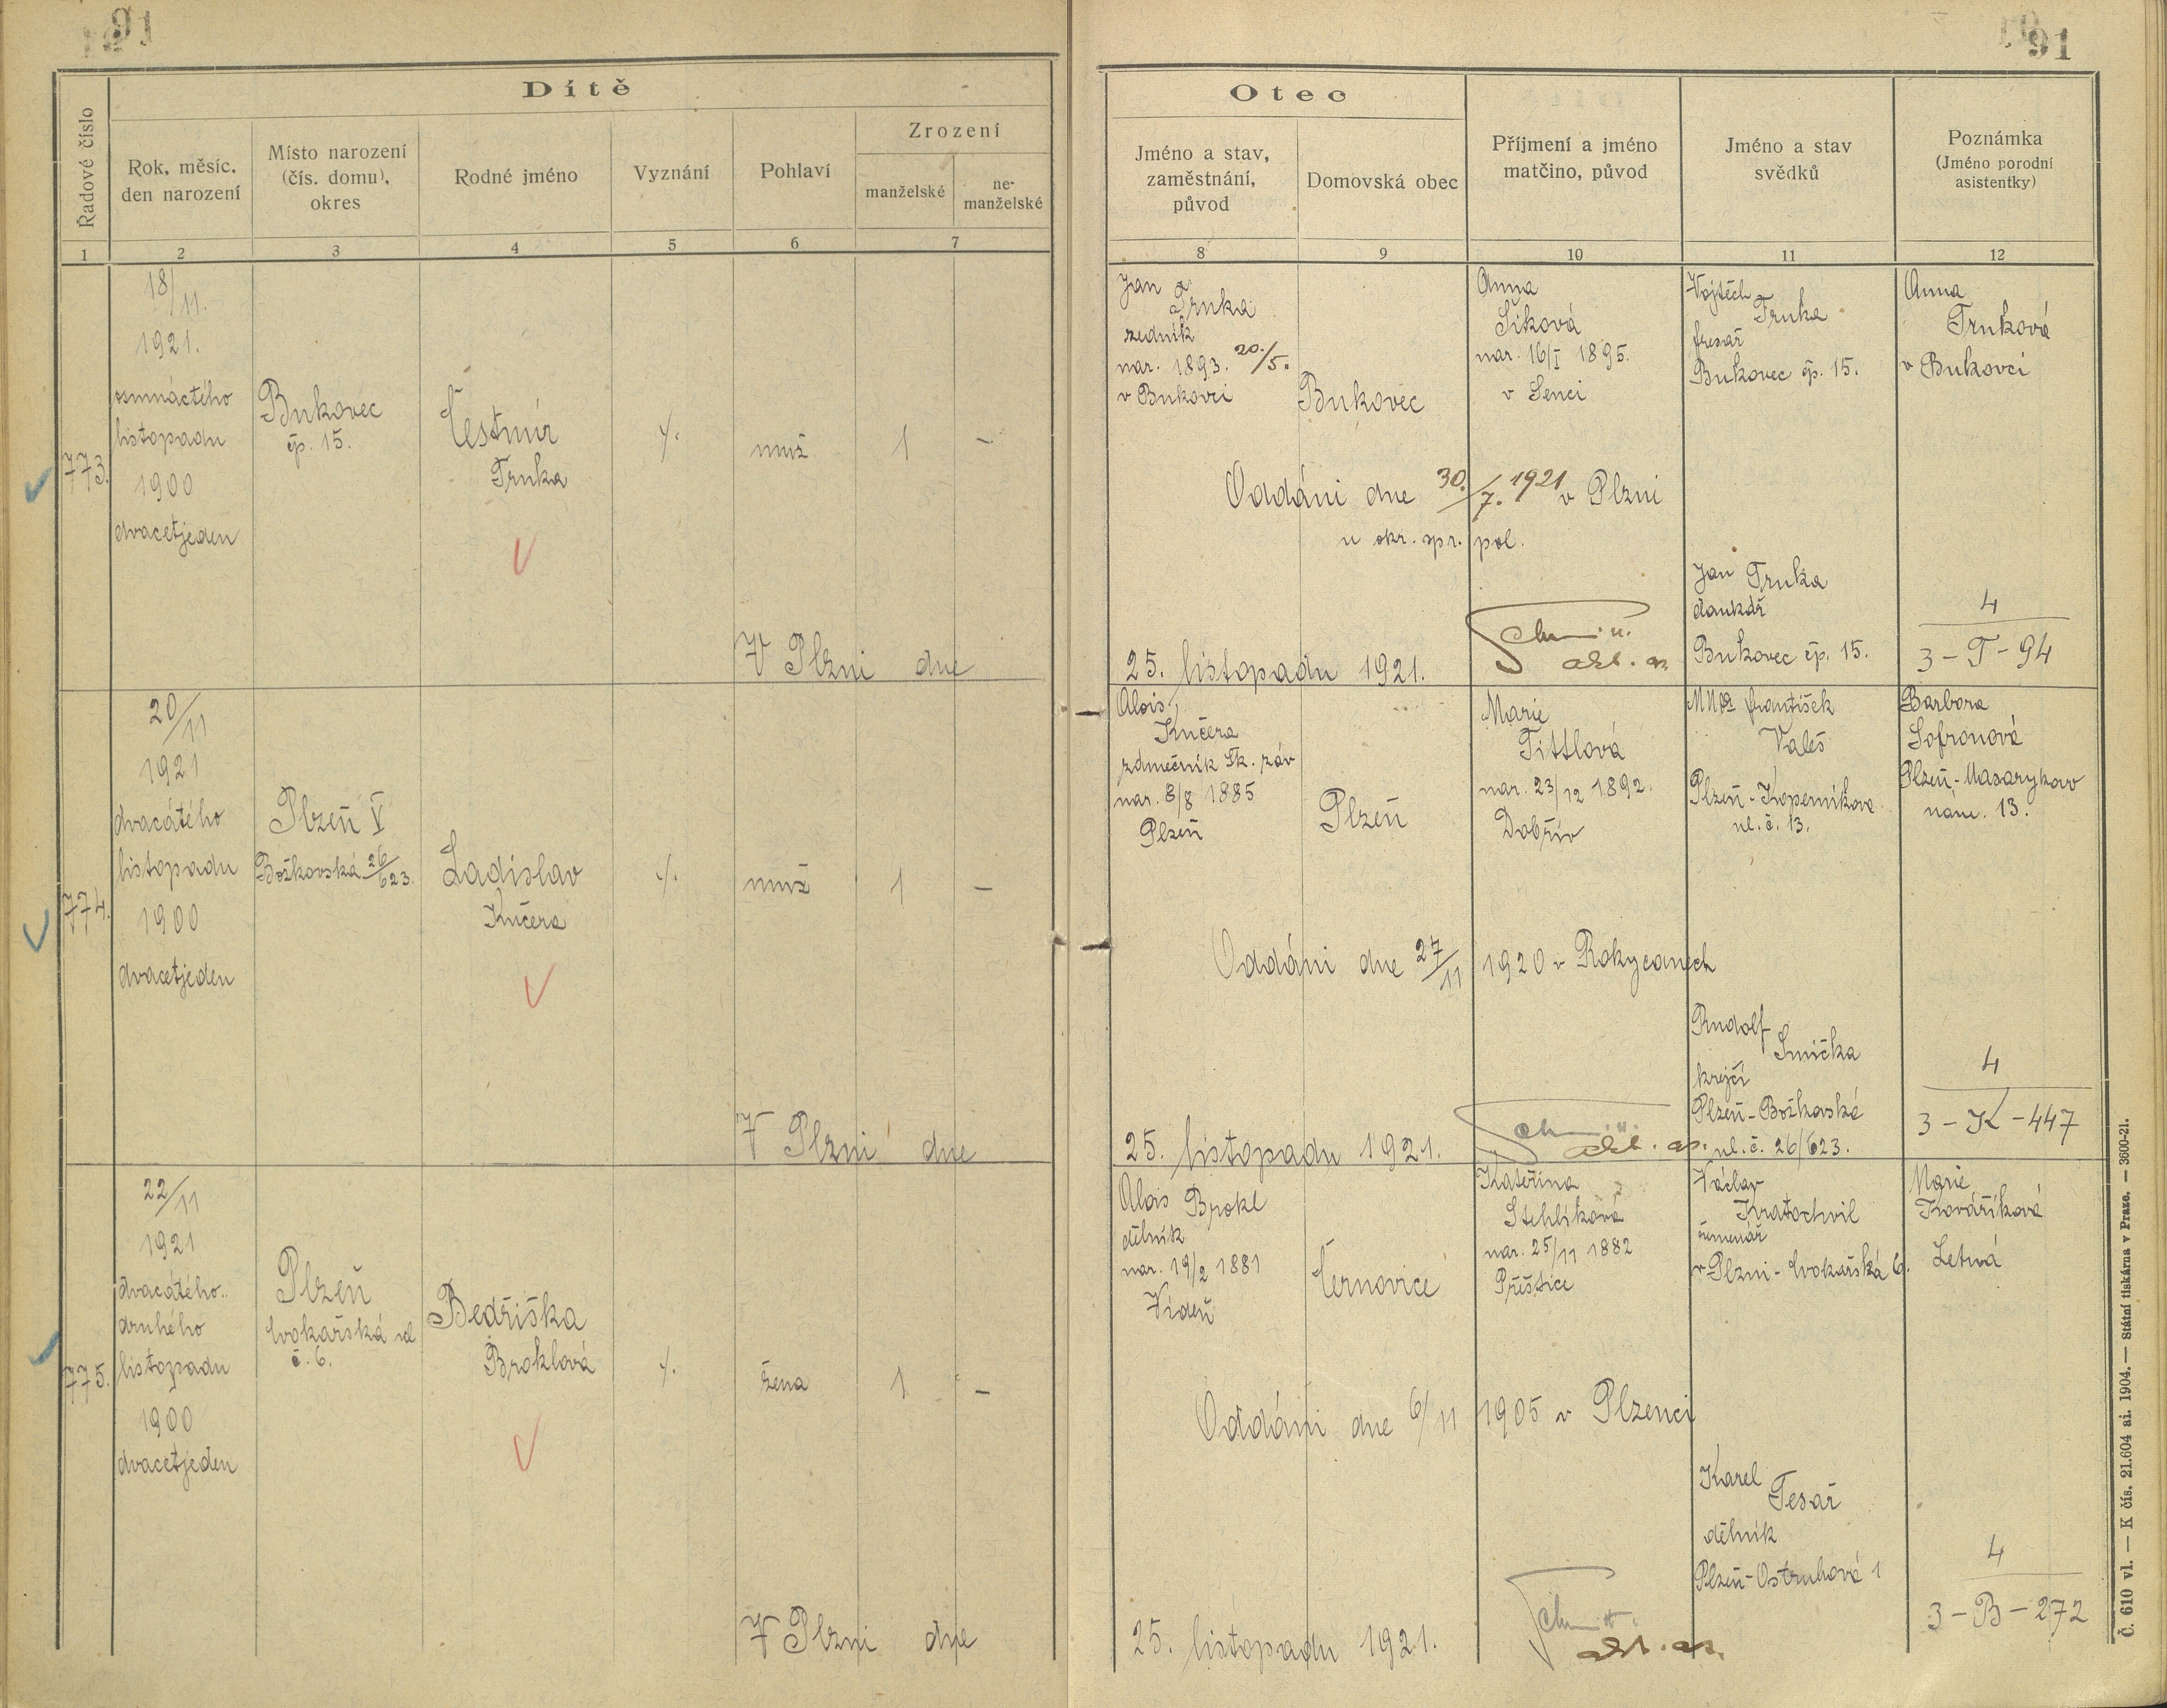 91
91
Dítě
Řadové číslo
Rok, měsíc,
den narození
Místo narození
(čís. domu),
okres
Rodné jméno
Vyznání
Pohlaví
Zrození
manželské
ne-
manželské
1
2
3
4
5
6
7
Otec
Jméno a stav,
zaměstnání,
původ
Domovská obec
Příjmení a jméno
matčino, původ
Jméno a stav
svědků
Poznámka
(Jméno porodní
asistentky)
8
9
10
11
12
773.
18/11.
1921.
osmnáctého
listopadu
1900
dvacetjeden
Bukovec
čp. 15.
Čestmír
Trnka
muž
1
–
V Plzni dne
Jan
Trnka
zedník
nar. 1893. 20./5.
v Bukovci
Bukovec
Anna
Šiková
nar. 16/I 1895.
v Senci
Vojtěch
Trnka
fresař
Bukovec čp. 15.
Anna
Trnková
v Bukovci
Oddáni dne 30./7. 1921 v Plzni
u okr. spr. pol.
Jan Trnka
Bukovec čp. 15.
4
3-T-94
25. listopadu 1921.
774.
20/11
1921
dvacátého
listopadu
1900
dvacetjeden
Plzeň V
Božkovská 26/623.
Ladislav
Kučera
muž
1
–
V Plzni dne
Alois
Kučera
zámečník Šk. záv
nar. 8/8 1885
Plzeň
Plzeň
Marie
Tittlová
nar. 23/12 1892.
Dobřív
MUDr František
Valeš
Plzeň-Koperníkova
ul. č. 13.
Barbora
Sofronová
Plzeň-Masarykovo
nám. 13.
Oddáni dne 27/11 1920 v Rokycanech
Rudolf
Smička
krejčí
Plzeň-Božkovská
ul. č. 26/623.
4
3-K-447
25. listopadu 1921.
775.
22/11
1921
dvacátého-
druhého
listopadu
1900
dvacetjeden
Plzeň
Cvokařská ul
č. 6.
Bedřiška
Broklová
žena
1
–
V Plzni dne
Alois Brokl
dělník
nar. 19/2 1881
Vídeň
Černovice
Kateřina
Stehlíková
nar. 25/11 1882
Přeštice
Václav
Kratochvil
řemenář
v Plzni-Cvokařská 6.
Marie
Kováříková
Letná
Oddáni dne 6/11 1905 v Plzenci
Karel
Tesař
dělník
Plzeň-Ostruhová 1
4
3-B-272
25. listopadu 1921.
Č. 610 vl. — K čís. 21.604 ai. 1904. — Státní tiskárna v Praze. — 3600-21.